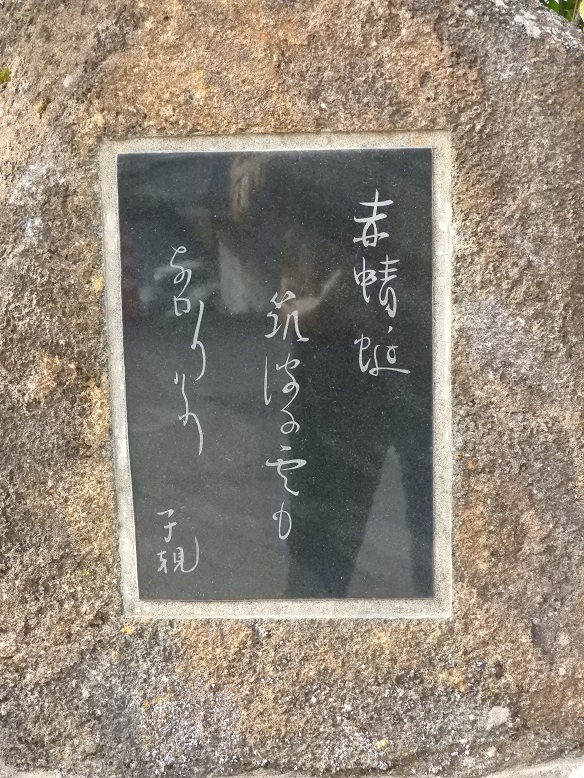 赤蜻蜓
筑波に雲も
なかりけり
子規